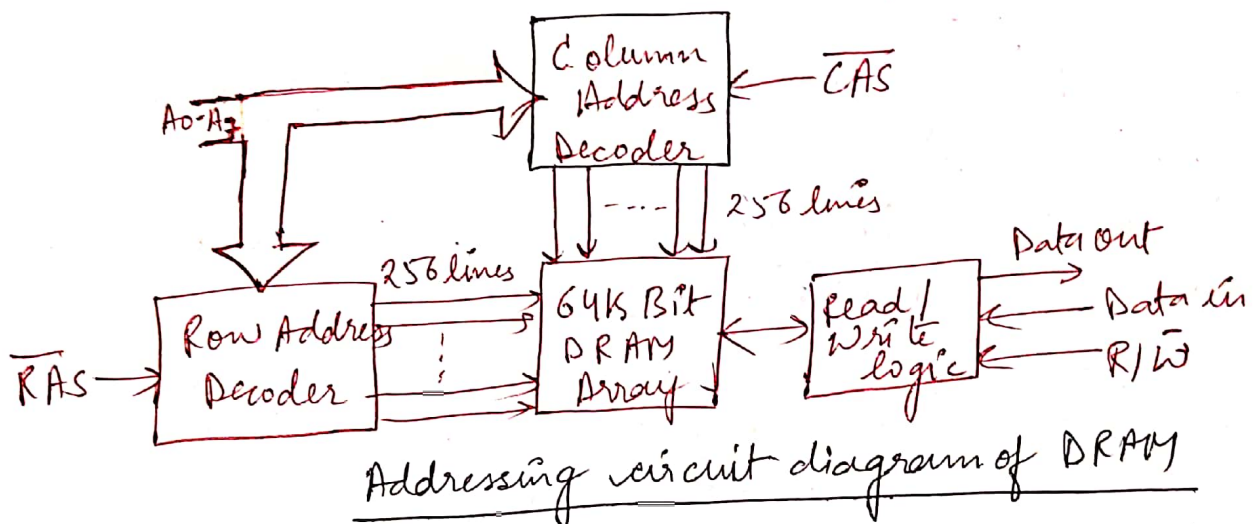 Column
Address
Decoder
CAS
A0-A7
256 lines
256 lines
Row Address
Decoder
RAS
64K Bit
DRAM
Array
Read/
Write
logic
Data out
Data in
R/W̅
Addressing circuit diagram of DRAM